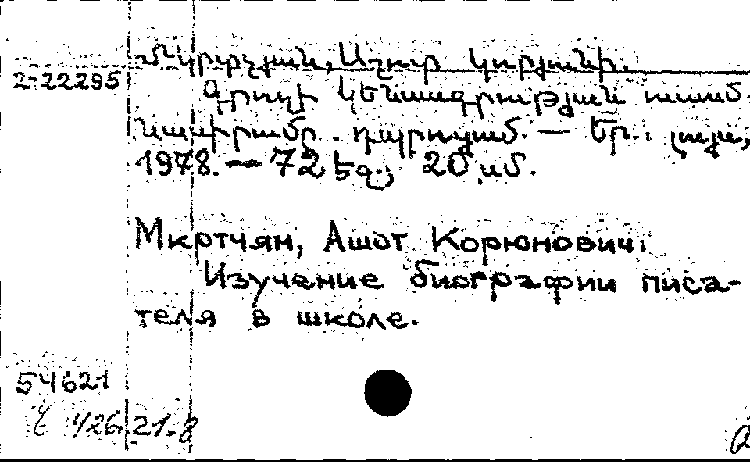 2-22295
Մկրտչյան, Աշոտ Կորյունի.
Գրողի կենսագրության ուսում-
նասիրումը դպրոցում. — Եր.: Լույս,
1978. — 72 էջ; 20 սմ.
Мкртчян, Ашот Корюнович.
Изучение биографии писа-
теля в школе.
54621
426.21-8